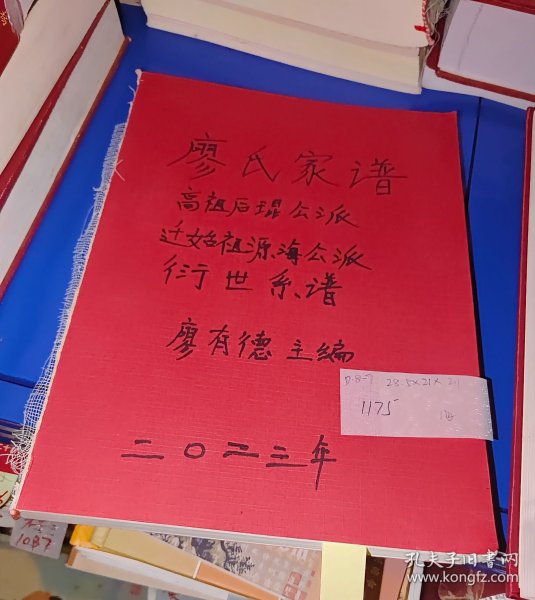 廖氏家谱
高祖后琨公派
迁始祖源海公派
衍世系谱
廖有德主编
二〇二三年
28.5×21×2.1
1175
1087
孔夫子旧书网
www.kongfz.com